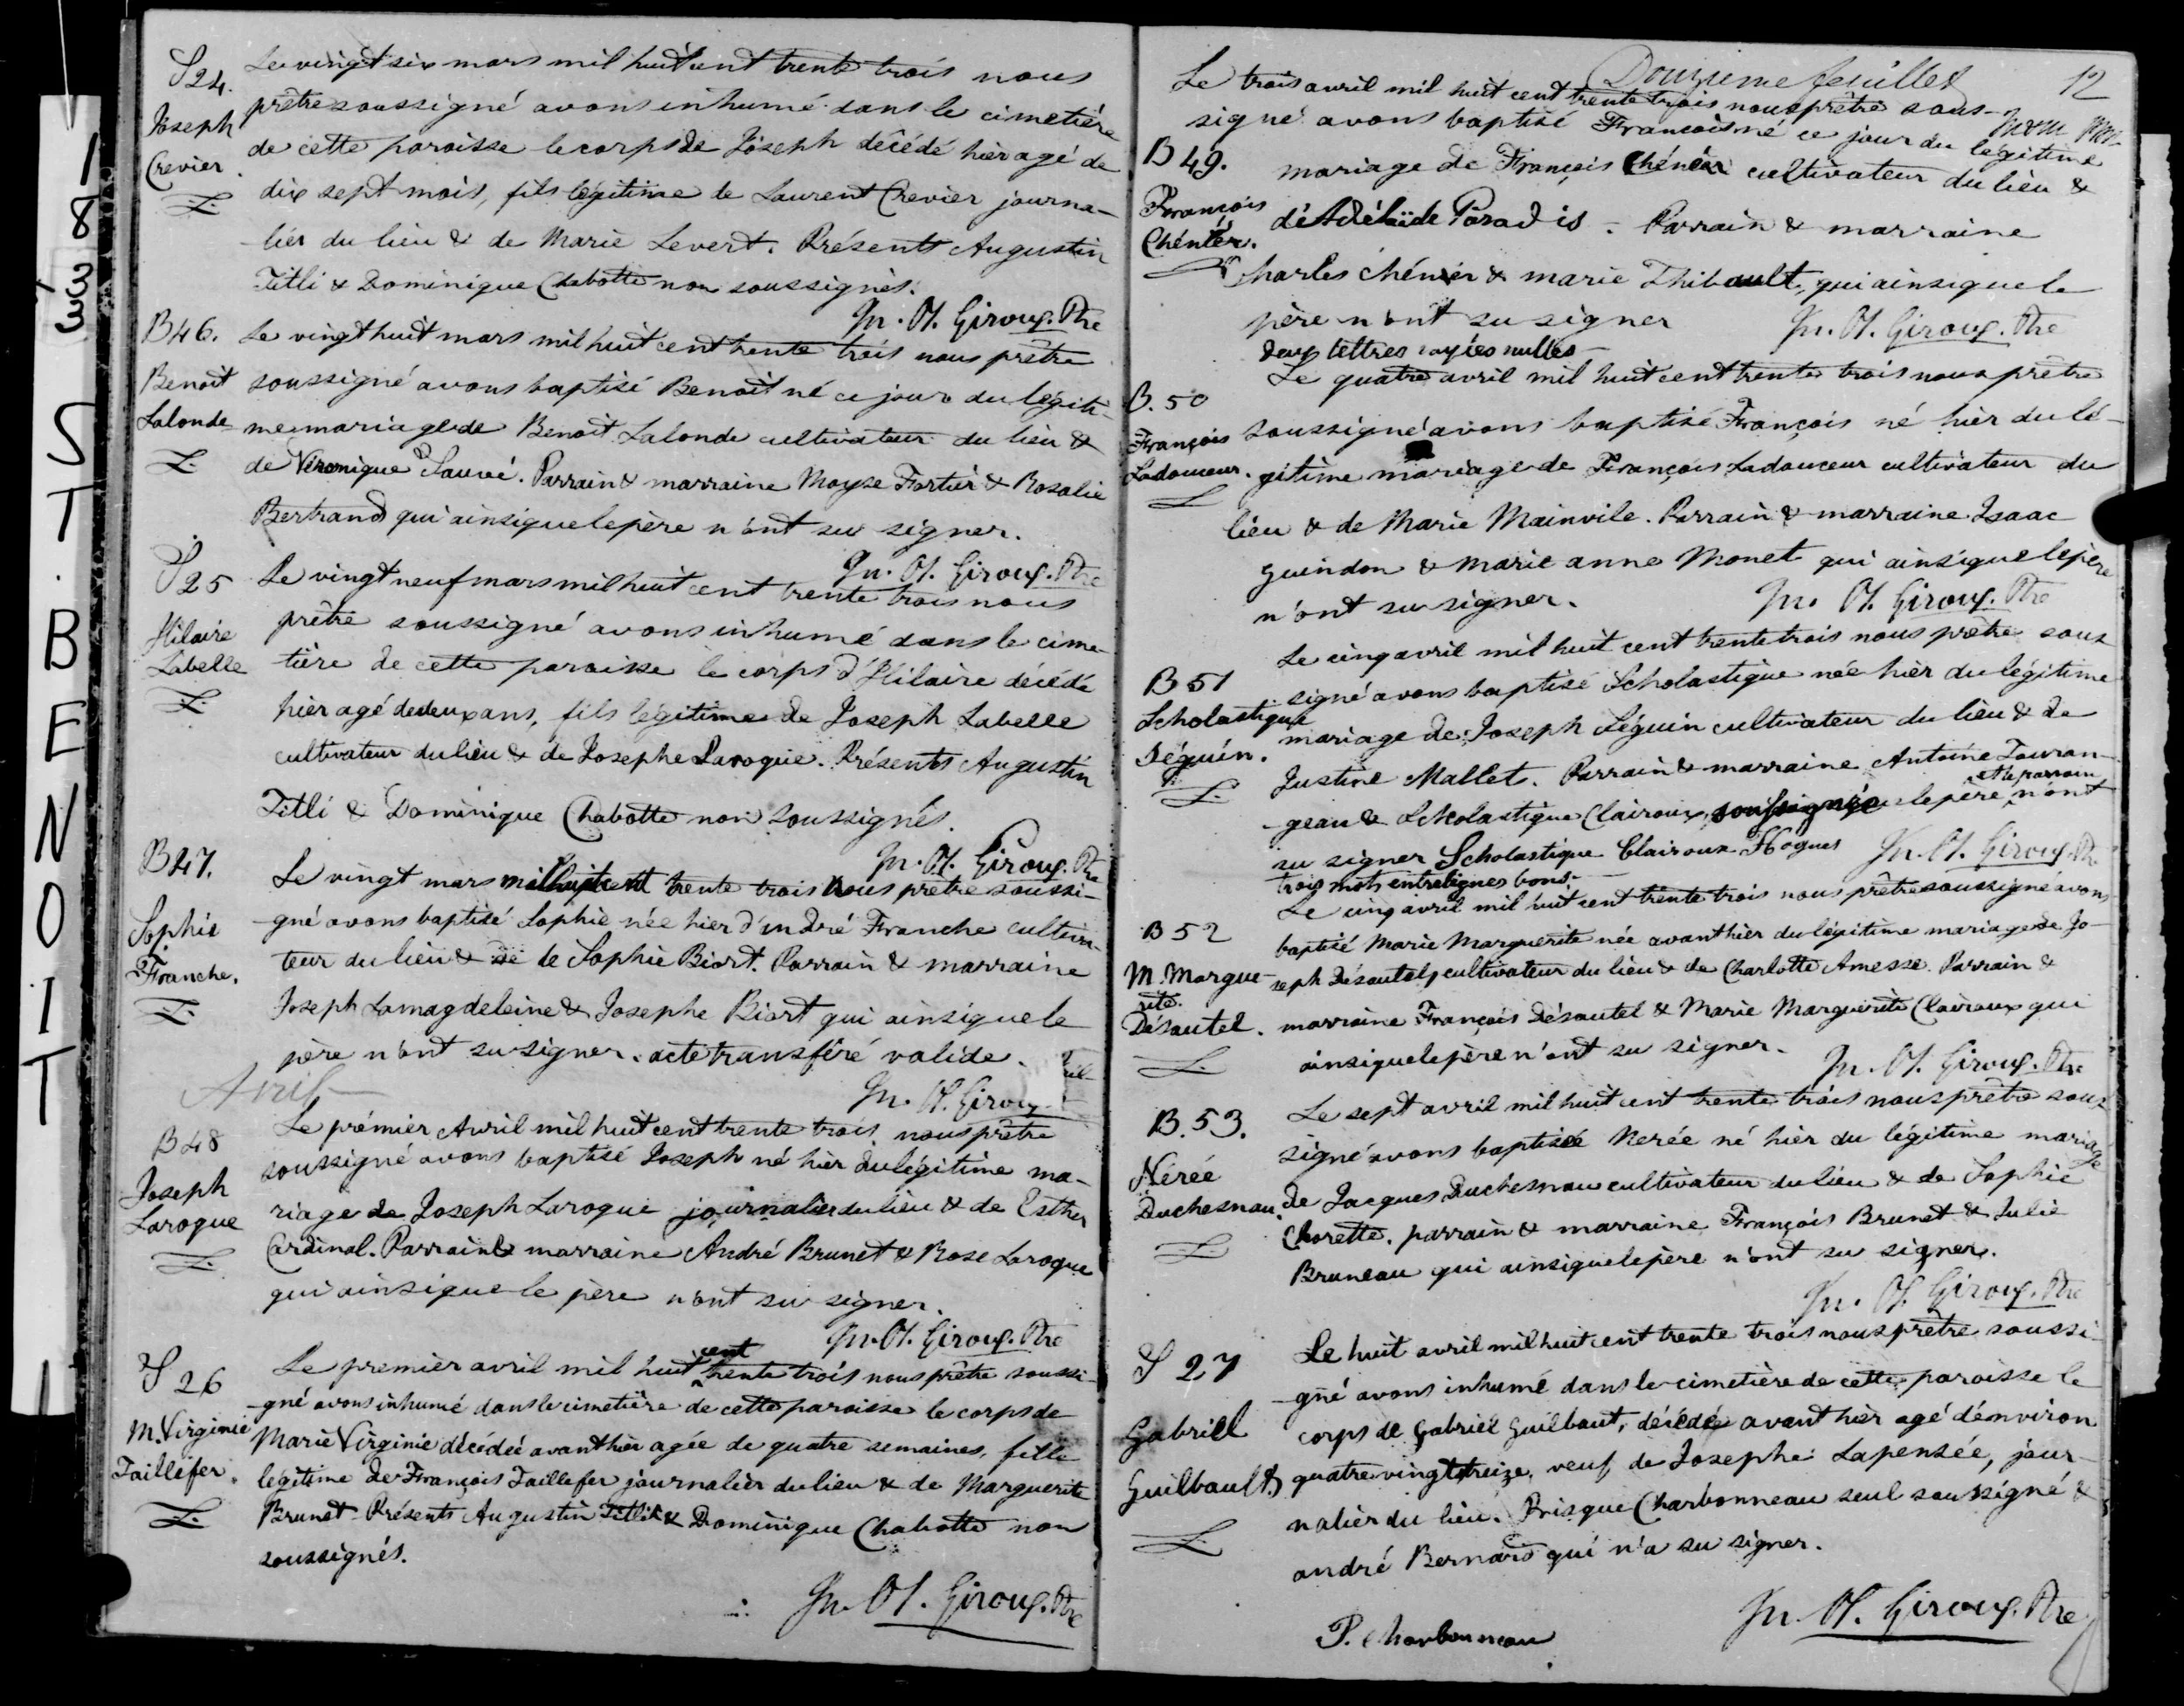 1833 ST. BENOIT
S24.
Joseph
Crevier.
L.
Le vingt six mars mil huit cent trente trois nous
prêtre soussigné avons inhumé dans le cimetière
de cette paroisse le corps de Joseph décédé hier agé de
dix sept mois, fils légitime de Laurent Crevier journa-
lier du lieu & de Marie Levert. Présents Augustin
Titli & Dominique Chabotte non soussignés.
Jn. O. Giroux. Ptre
B46.
Benoit
Lalonde
L.
Le vingt huit mars mil huit cent trente trois nous prêtre
soussigné avons baptisé Benoit né ce jour du légiti-
me mariage de Benoit Lalonde cultivateur du lieu &
de Véronique Sauvé. Parrain & marraine Moyse Fortier & Rosalie
Bertrand qui ainsi que le père n'ont su signer.
Jn. O. Giroux. Ptre
S25
Hilaire
Labelle
L.
Le vingt neuf mars mil huit cent trente trois nous
prêtre soussigné avons inhumé dans le cime-
tière de cette paroisse le corps d'Hilaire décédé
hier agé de deux ans, fils légitime de Joseph Labelle
cultivateur du lieu & de Josephe Laroque. Présents Augustin
Titli & Dominique Chabotte non soussignés.
Jn. O. Giroux. Ptre
B47.
Sophie
Franche.
L.
Le vingt mars mil huit cent trente trois Nous prêtre soussi-
gné avons baptisé Sophie née hier d'André Franche cultiva-
teur du lieu & de de Sophie Biort. Parrain & marraine
Joseph Lamagdeleine & Josephe Biort qui ainsi que le
père n'ont su signer. acte transféré valide.
Jn. O. Giroux
Avril
B48
Joseph
Laroque
L.
Le prémier Avril mil huit cent trente trois nous prêtre
soussigné avons baptisé Joseph né hier du légitime ma-
riage de Joseph Laroque journalier du lieu & de Esther
Cardinal. Parrain & marraine André Brunet & Rose Laroque
qui ainsi que le père n'ont su signer.
Jn. O. Giroux. Ptre
S26
M. Virginie
Taillefer.
L.
Le premier avril mil huit cent trente trois nous prêtre soussi-
gné avons inhumé dans le cimetière de cette paroisse le corps de
Marie Virginie décédée avant hier agée de quatre semaines, fille
légitime de François Taillefer journalier du lieu & de Marguerite
Brunet. Présents Augustin Titli & Dominique Chabotte non
soussignés.
Jn. O. Giroux. Ptre
Douzieme feuillet 12
B49.
François
Chénier.
L
Le trois avril mil huit cent trente trois nous prêtre sous-
signé avons baptisé François né ce jour du légitime
mariage de François Chénier cultivateur du lieu &
de Adélaïde Paradis. Parrain & marraine
Charles Chénier & marie Thibault, qui ainsi que le
père n'ont su signer
Jn. O. Giroux. Ptre
deux lettres rayées nulles
B.50
François
Ladouceur.
L
Le quatre avril mil huit cent trente trois nous prêtre
soussigné avons baptisé François né hier du lé-
gitime mariage de François Ladouceur cultivateur du
lieu & de Marie Mainvile. Parrain & marraine Isaac
Guindon & marie anne Monet qui ainsi que le père
n'ont su signer.
Jn. O. Giroux. Ptre
B51
Scholastique
Séguin.
L.
Le cinq avril mil huit cent trente trois nous prêtre sous
signé avons baptisé Scholastique née hier du légitime
mariage de Joseph Séguin cultivateur du lieu & de
Justine Mallet. Parrain & marraine Antoine Touran-
geau & Scholastique Clairoux, soussignée le père et le parrain n'ont
su signer Scholastique Clairoux Hogues Jn. O. Giroux Ptre
trois mots entrelignes bons.
B52
M. Margue-
rite.
Désautel.
L.
Le cinq avril mil huit cent trente trois nous prêtre soussigné avons
baptisé Marie Marguerite née avant hier du légitime mariage de Jo-
seph Désautel cultivateur du lieu & de Charlotte Amesse. Parrain &
marraine François Désautel & Marie Marguerite Clairoux qui
ainsi que le père n'ont su signer.
Jn. O. Giroux. Ptre
B.53.
Nérée
Duchesnau.
L
Le sept avril mil huit cent trente trois nous prêtre sous
signé avons baptisé Nerée né hier du légitime mariage
de Jacques Duchesnau cultivateur du lieu & de Sophie
Chorette. parrain & marraine François Brunet & Julie
Bruneau qui ainsi que le père n'ont su signer.
Jn. O. Giroux. Ptre
S27
Gabriel
Guilbault
L
Le huit avril mil huit cent trente trois nous prêtre soussi-
gné avons inhumé dans le cimetière de cette paroisse le
corps de Gabriel Guilbaut, décédé avant hier agé d'environ
quatre vingt treize, veuf de Josephe Lapensée, jour-
nalier du lieu. Prisque Charbonneau seul soussigné &
andré Bernard qui n'a su signer.
Jn. O. Giroux. Ptre
P. Charbonneau